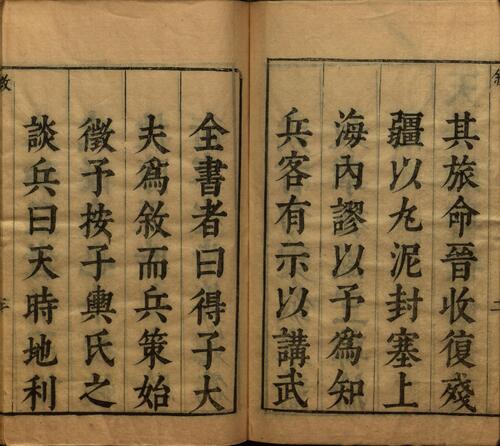 其旅命晉收復殘
疆以丸泥封塞上
海內謬以予爲知
兵客有示以講武
全書者曰得子大
夫爲敘而兵策始
徵予按子輿氏之
談兵曰天時地利